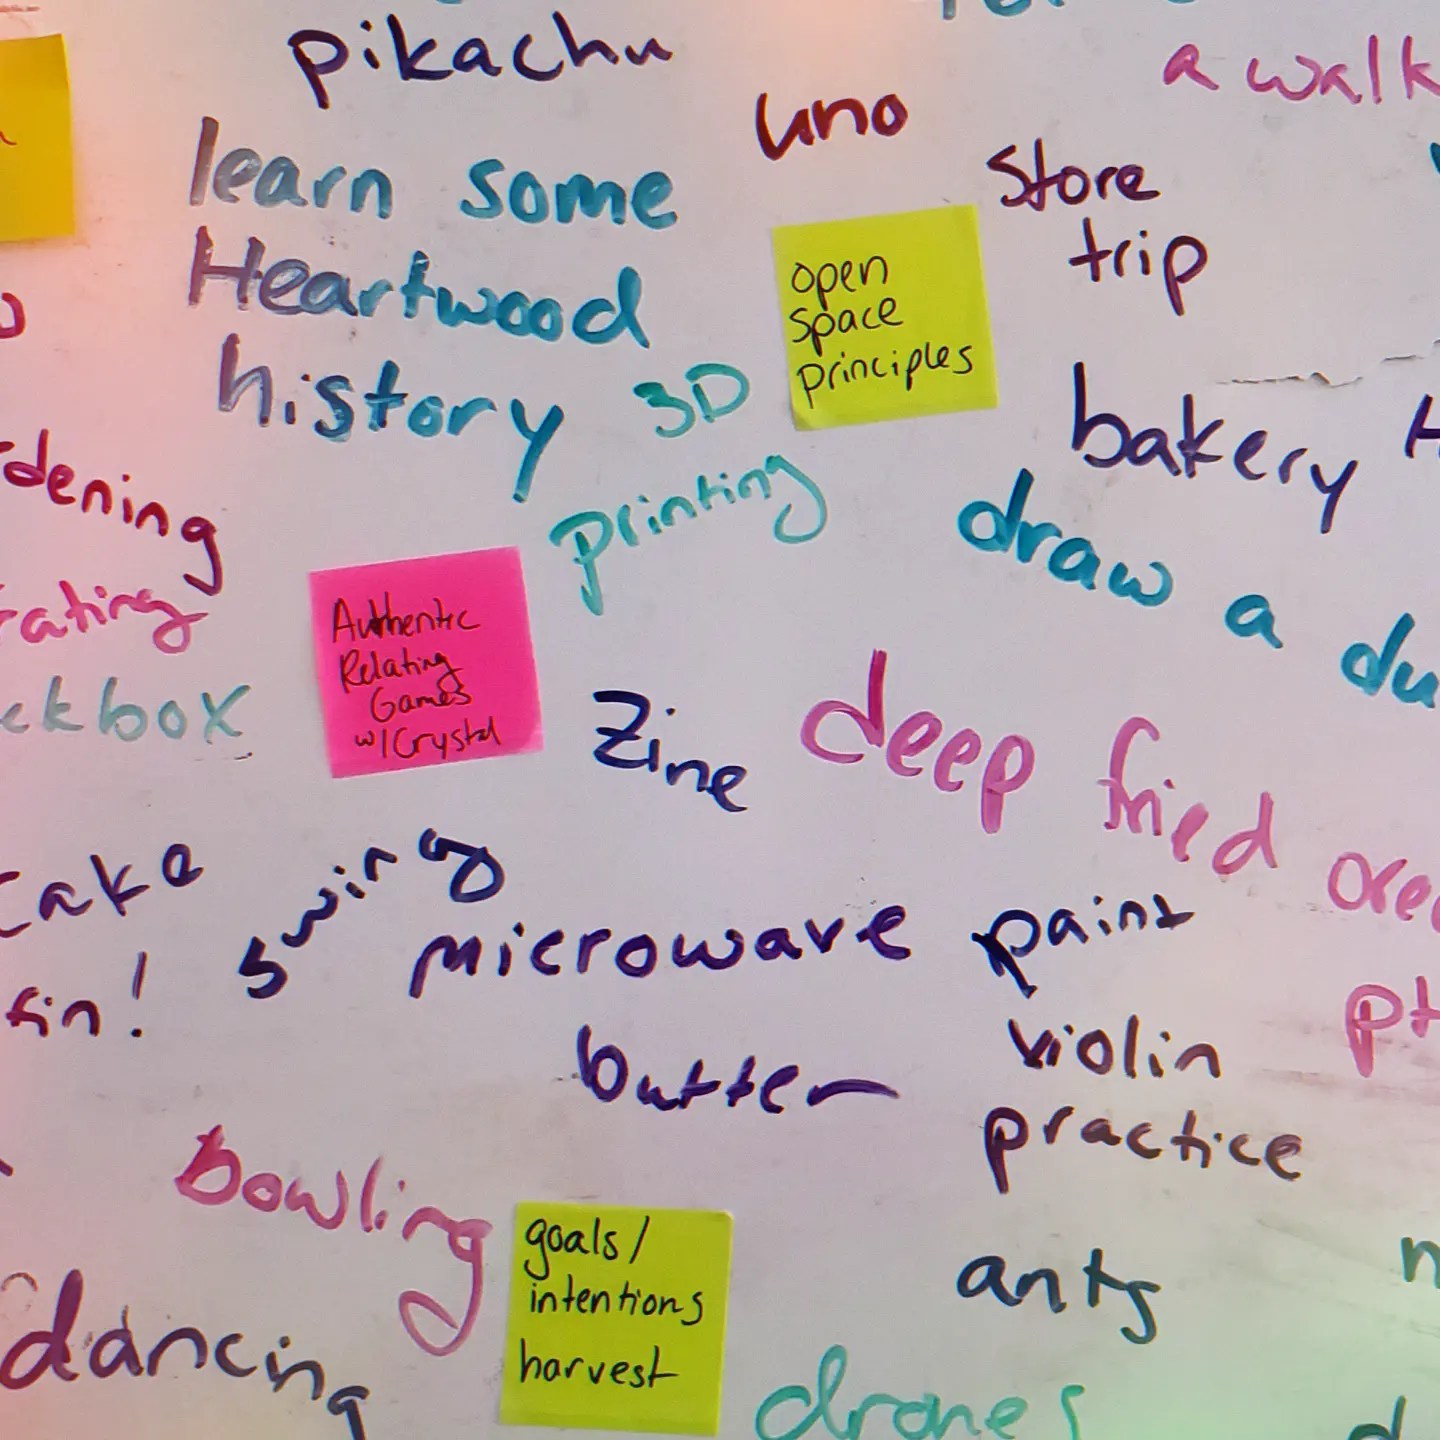 pikachu
a walk
uno
learn some
Heartwood
history
store
trip
open
space
principles
3D
printing
bakery
draw a
Authentic
Relating
Games
w/Crystal
zine
deep fried
swing
microwave
butter
paint
violin
practice
bowling
goals/
intentions
harvest
ants
dancing
drones